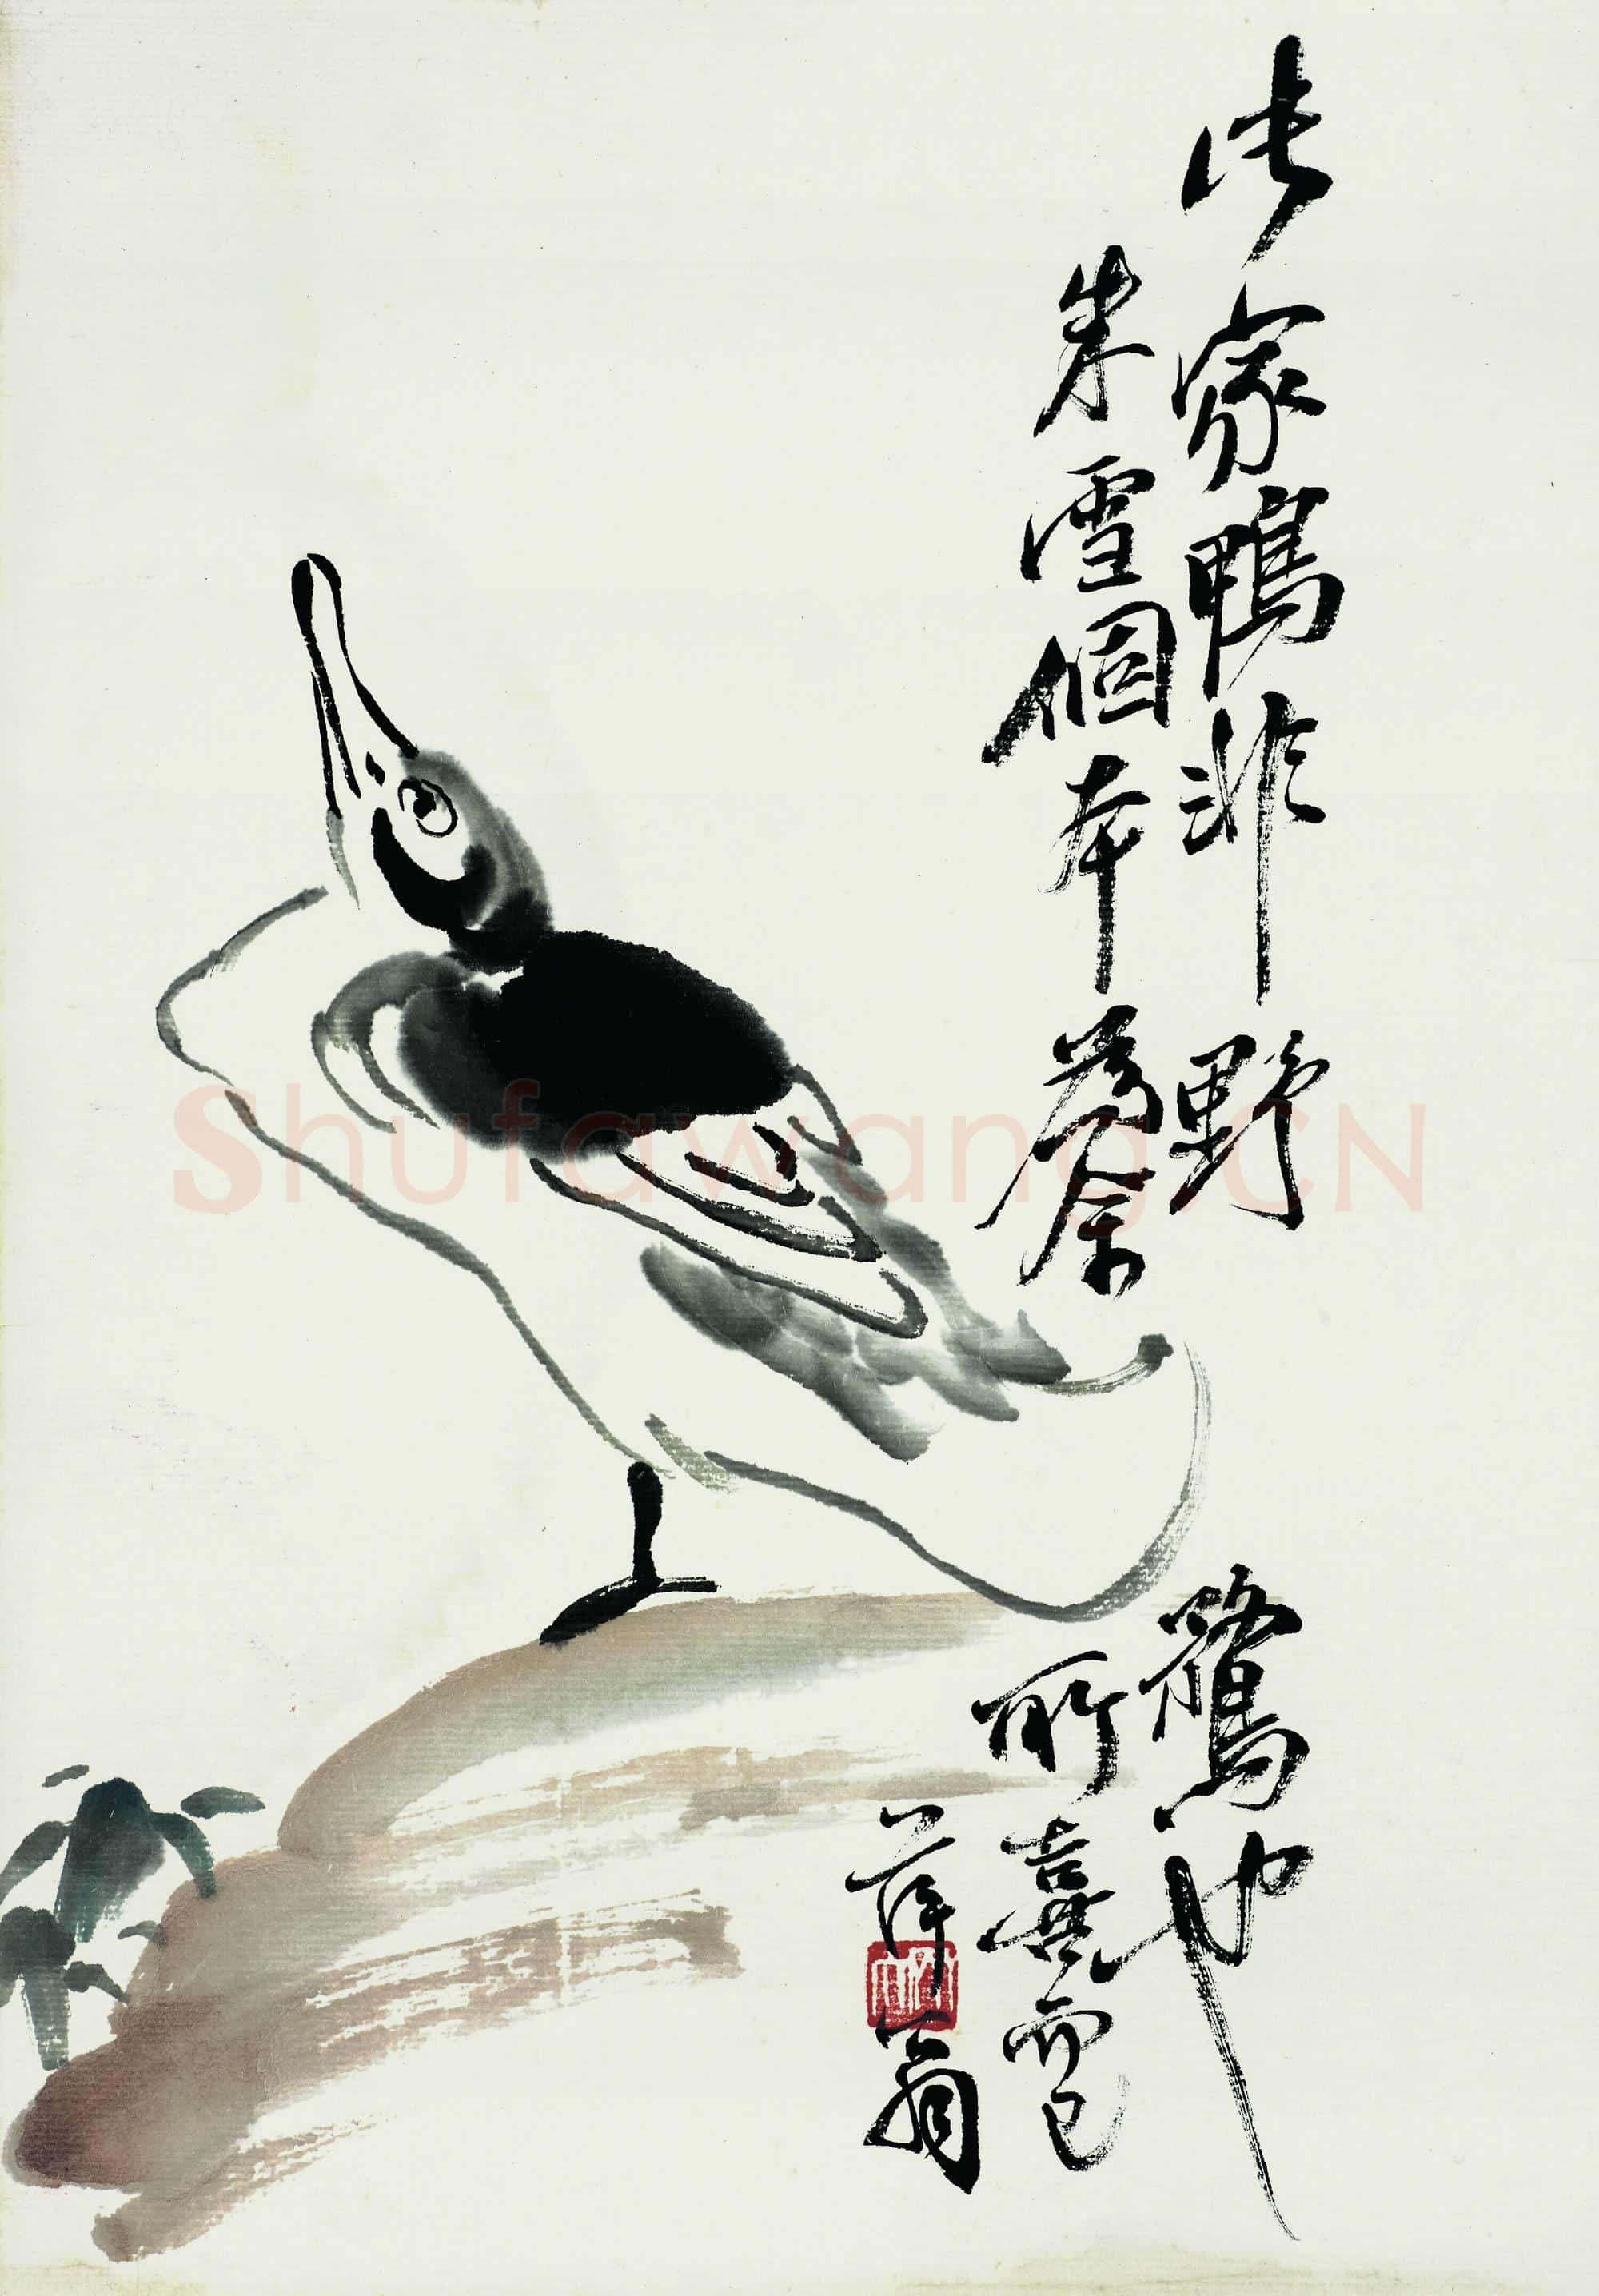 此家鴨非野鶩也
朱雪個本為余所喜而已
萍翁
Shufawang.CN